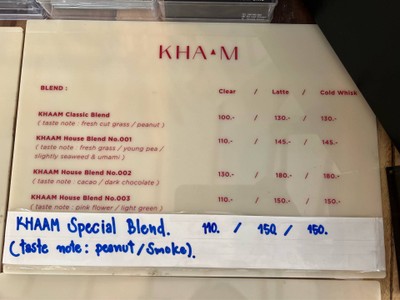 KHAAM
BLEND : Clear / Latte / Cold Whisk
KHAAM Classic Blend 100.- / 130.- / 130.-
( taste note : fresh cut grass / peanut )
KHAAM House Blend No.001 110.- / 145.- / 145.-
( taste note : fresh grass / young pea /
slightly seaweed & umami )
KHAAM House Blend No.002 130.- / 180.- / 180.-
( taste note : cacao / dark chocolate )
KHAAM House Blend No.003 110.- / 150.- / 150.-
( taste note : pink flower / light green )
KHAAM Special Blend. 110. / 150. / 150.
(taste note : peanut / Smoke).